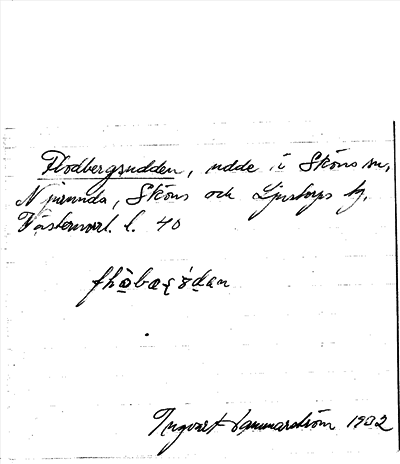 Flodbergsudden, udde i Sköns sn,
Njurunda, Sköns och Ljustorps tg,
Västernorrl. l. 40
Ingvart Hammarström 1932